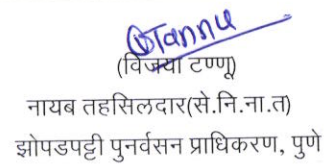 Tannu
(विजया टण्णू)
नायब तहसिलदार(से.नि.ना.त)
झोपडपट्टी पुनर्वसन प्राधिकरण, पुणे